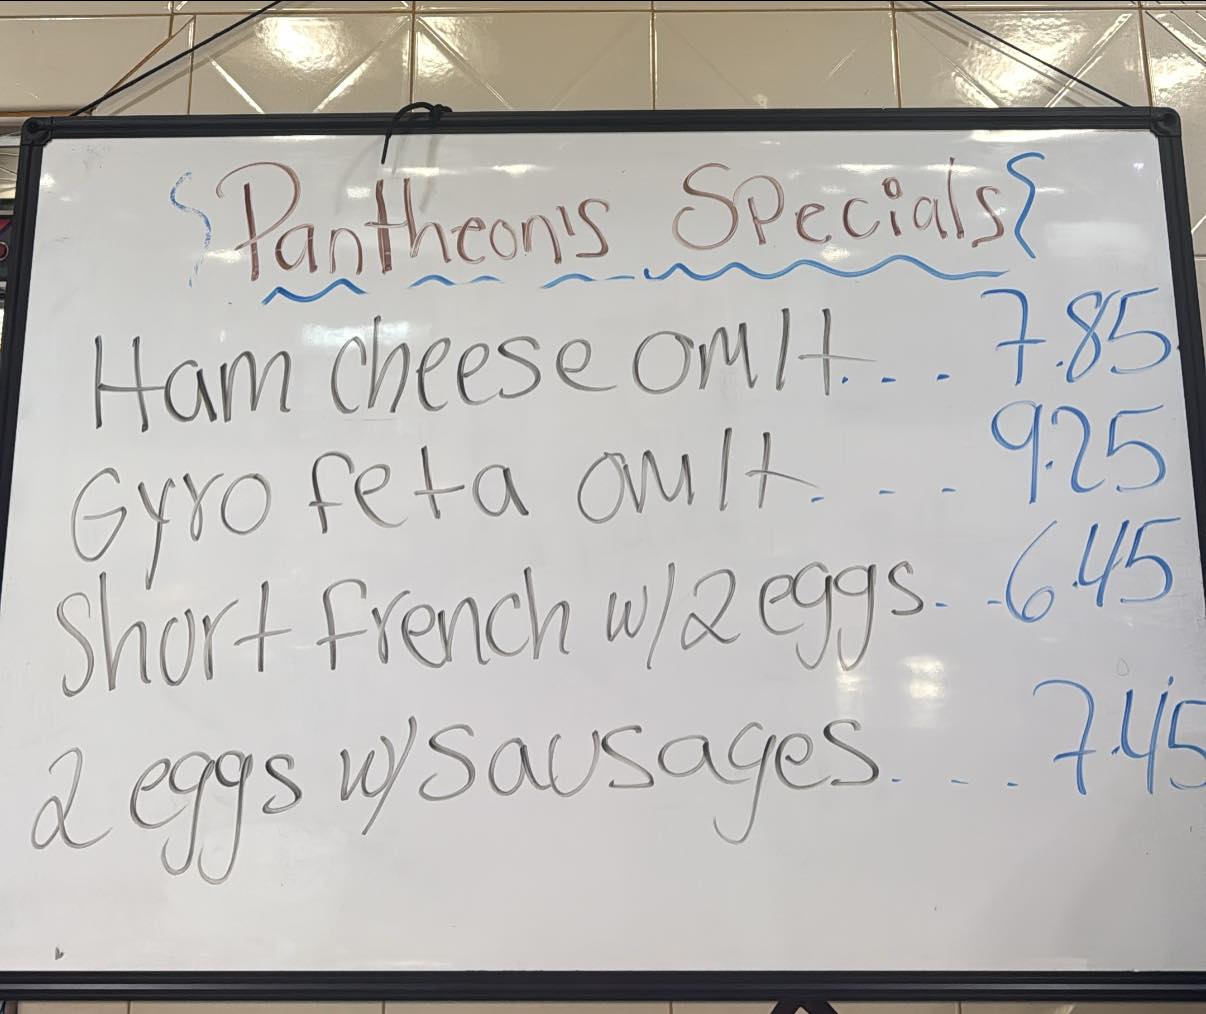 Pantheon's Specials
Ham cheese omlt... 7.85
Gyro feta omlt... 9.25
Short french w/2 eggs.. 6.45
2 eggs w/sausages... 7.45